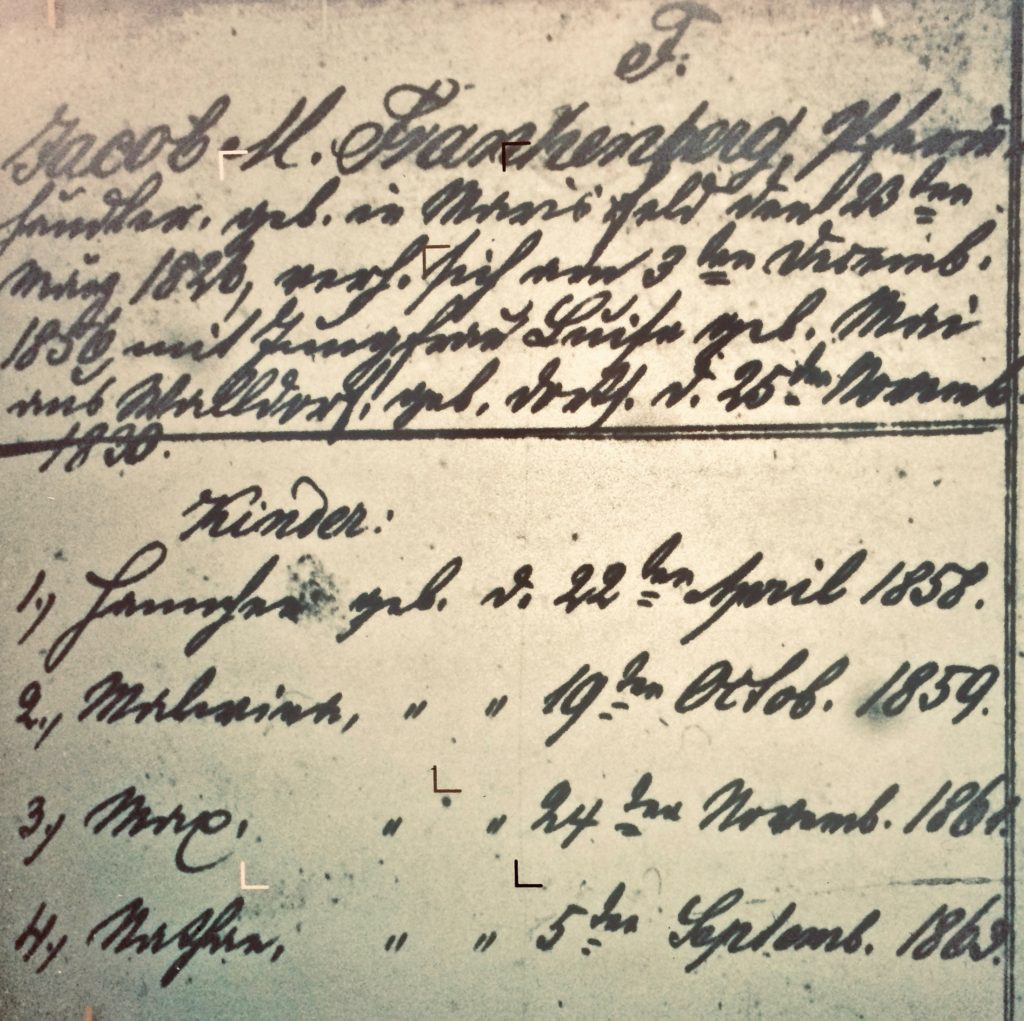 F.
Jacob M. Frankenberg, Pferde
händler, geb. in Marisfeld den 23ten
März 1826, verh. sich am 3ten Decemb.
1856 mit Jungfrau Luise geb. Mai
aus Walldorf, geb. dorts. d. 25ten Novemb.
1830.
Kinder:
1.) Hannchen geb. d. 22ten April 1858.
2.) Malwina, " " 19ten Octob. 1859.
3.) Max, " " 24ten Novemb. 1861.
4.) Nathan, " " 5ten Septemb. 1863.